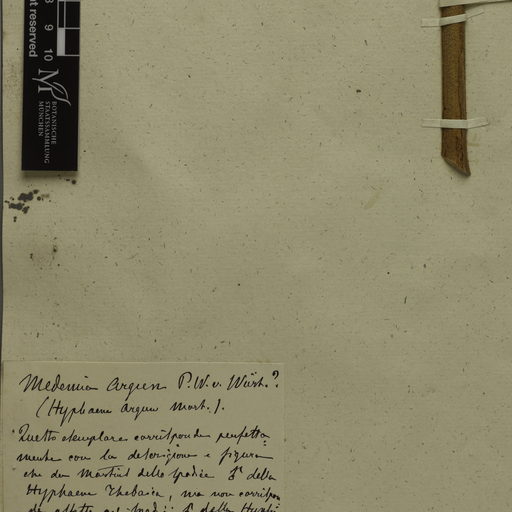 8 9 10
t reserved
M
BOTANISCHE
STAATSSAMMLUNG
MÜNCHEN
Medemia Argun P.W. v. Würt.?
(Hyphaene Argun Mart.).
Questo esemplare corrisponde perfetta
mente con la descrizione e figura
che da Martius dello spadice ♂ della
Hyphaene Thebaica, ma non corrispon
de affatto ♂ della